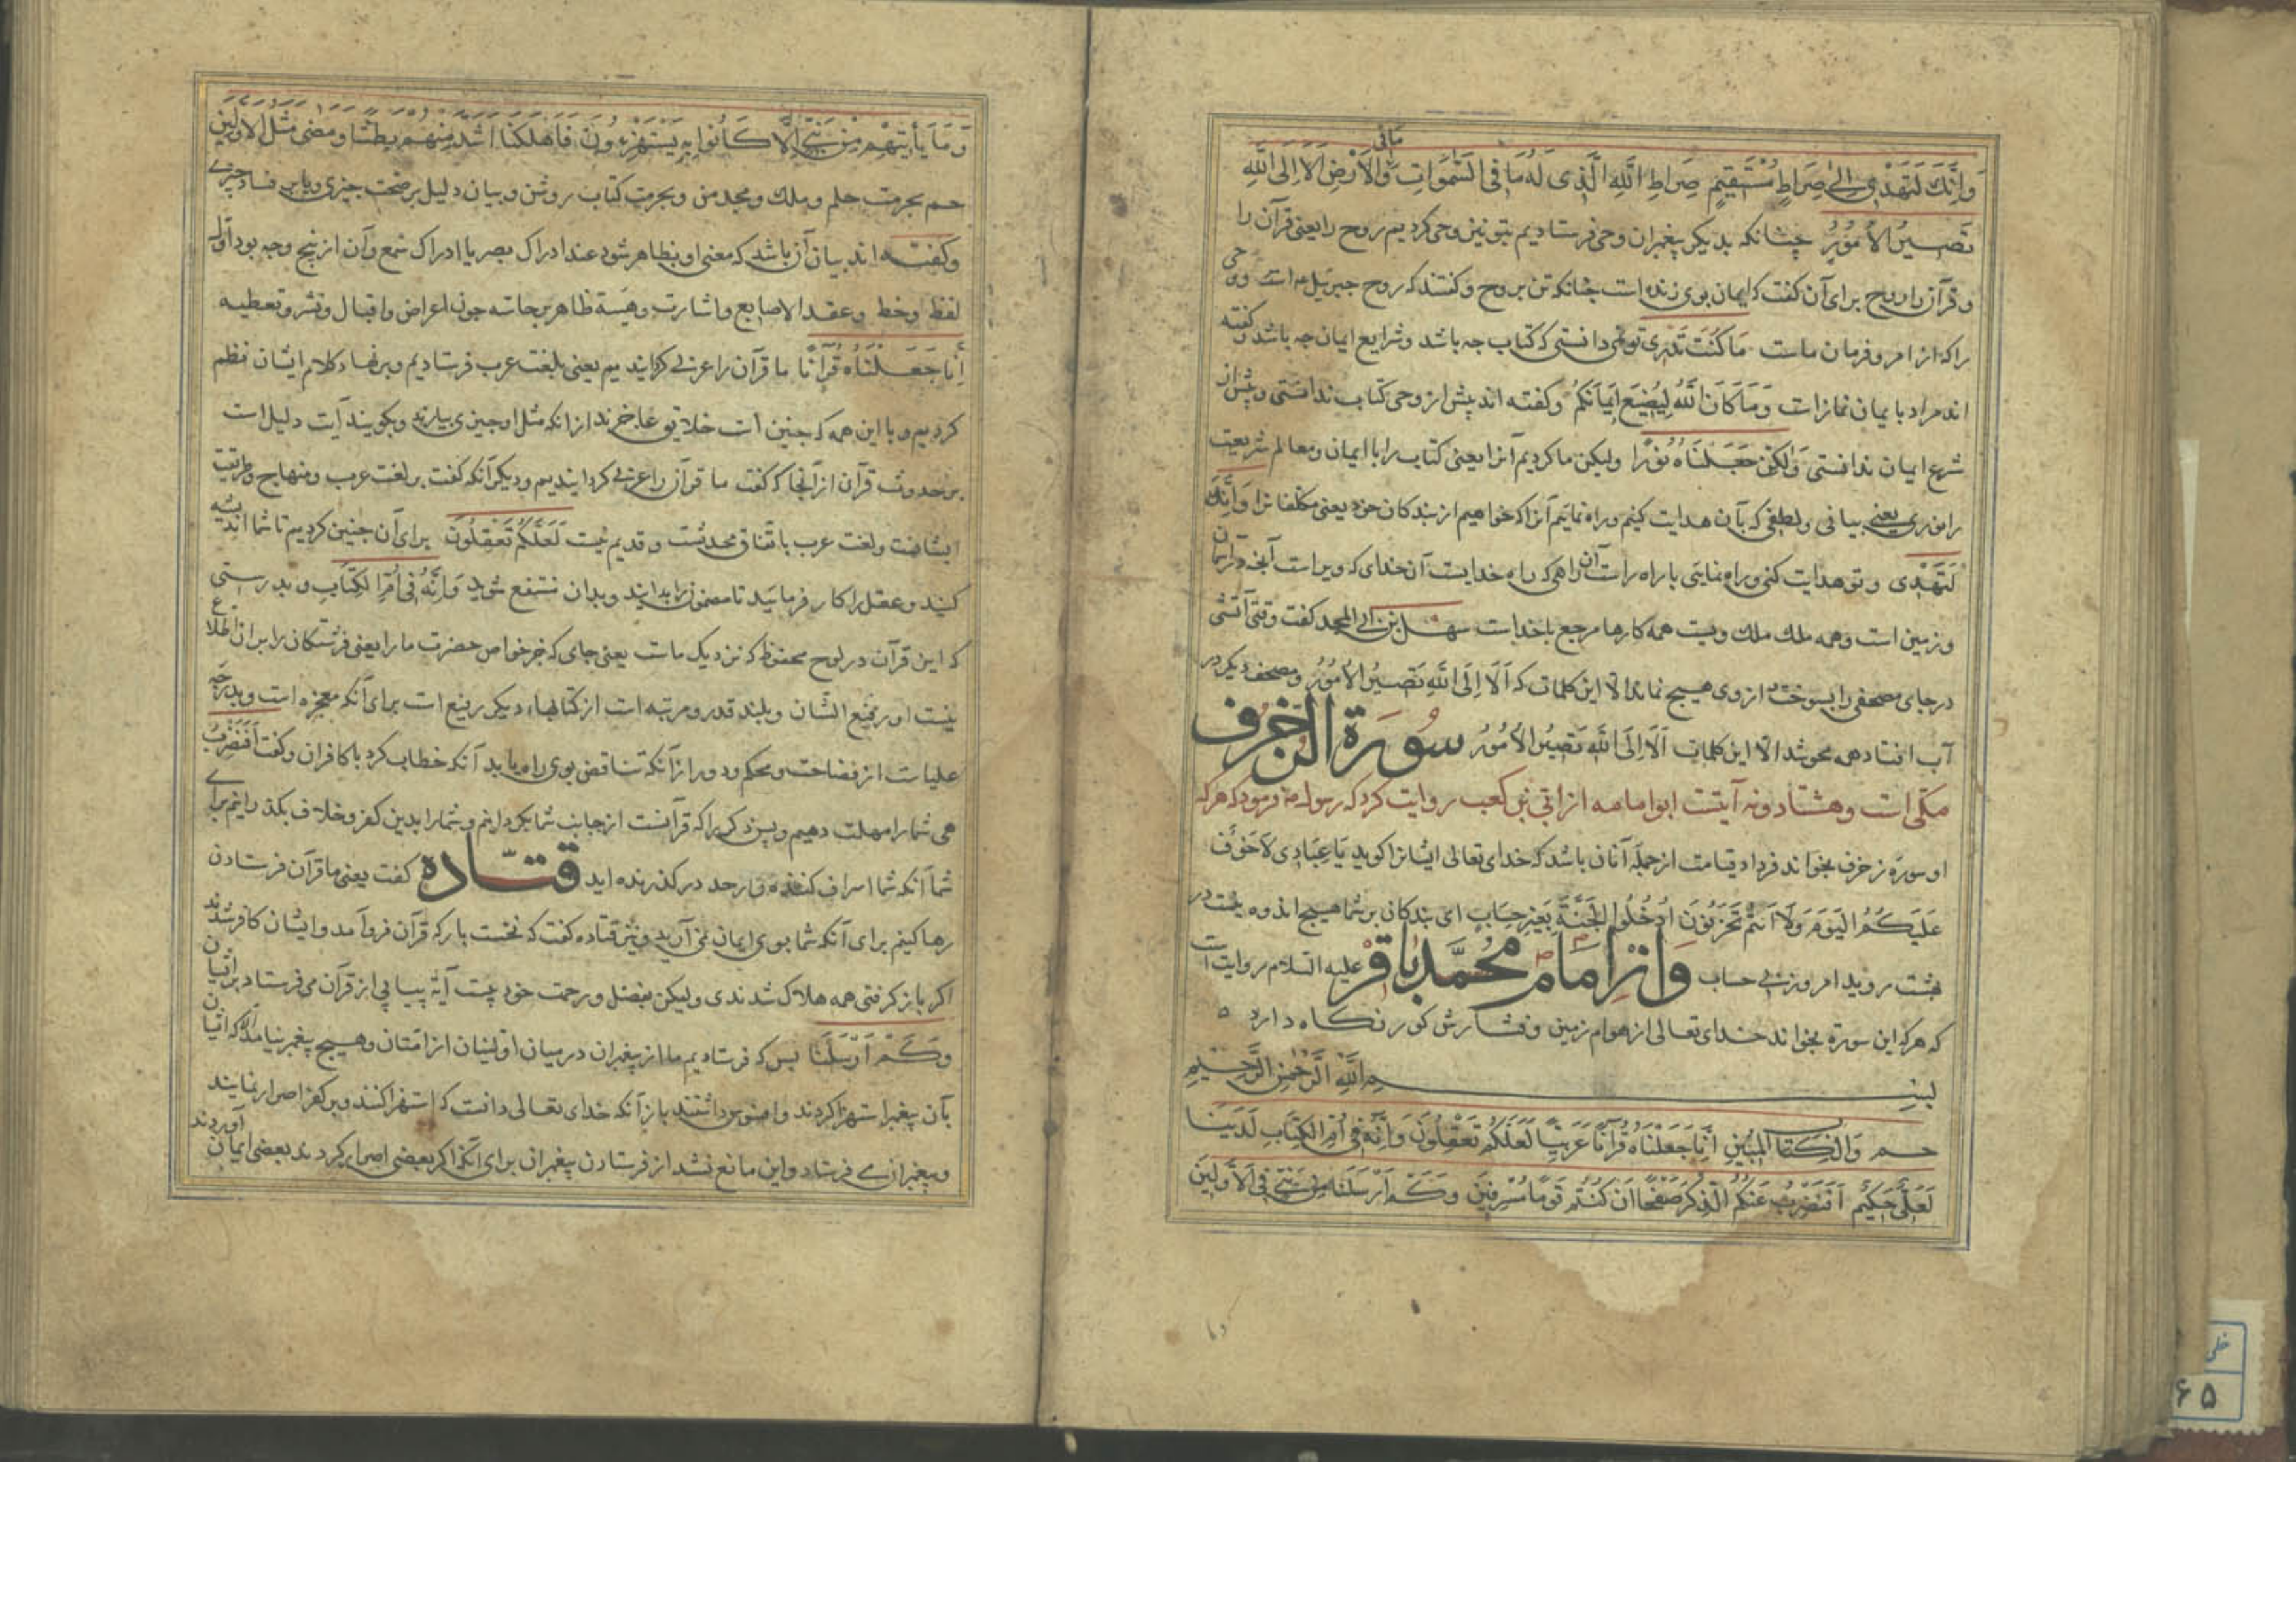 وَإِنَّكَ لَتَهْدِي إِلَى صِرَاطٍ مُسْتَقِيمٍ صِرَاطِ اللَّهِ الَّذِي لَهُ مَا فِي السَّمَوَاتِ وَمَا فِي الْأَرْضِ أَلَا إِلَى اللَّهِ
تَصِيرُ الْأُمُورُ چنانکه بدیکر پیغمبران وحی فرستادیم بتو نیز وحی کردیم روح را یعنی قرآن را
و قرآن را روح برای آن کفت که ایمان بوی زنده است چنانکه تن بروح و کفتند که روح جبرییل است وحی
را که از امر و فرمان ماست مَا كُنْتَ تَدْرِي تو نمی دانستی که کتاب چه باشد و شرایع ایمان چه باشد و کفته
اند مراد بایمان نمازات وَمَا كَانَ اللَّهُ لِيُضِيعَ إِيمَانَكُمْ و کفته اند پیش از وحی کتاب ندانستی و پیش از
شرع ایمان ندانستی وَلَكِنْ جَعَلْنَاهُ نُورًا ولیکن ما کردیم آنرا یعنی کتاب را با ایمان و معالم شریعت
را نوری یعنی بیانی و لطفی که بآن هدایت کنیم و راه نماییم آنرا که خواهیم از بندکان خود یعنی مکلفانرا وَإِنَّكَ
لَتَهْدِي و تو هدایت کنی و راه نمایی با راه راست آن راهی که راه خدایست آن خدای که ویراست آنچه در آسمان
و زمین است و همه ملک ملک ویست همه کارها مرجع باخداست سهل بن ابی الجعد کفت وقتی آتشی
در جای مصحفی را بسوخت از وی هیچ نماند الا این کلمات که أَلَا إِلَى اللَّهِ تَصِيرُ الْأُمُورُ و مصحف دیکر در
آب افتاد همه محو شد الا این کلمات أَلَا إِلَى اللَّهِ تَصِيرُ الْأُمُورُ سورة الزخرف
مکی است و هشتاد و نه آیتست ابو امامه از ابی بن کعب روایت کرد که رسول فرمود که هر که
او سورة زخرف بخواند فردا قیامت از جمله آنان باشد که خدای تعالی ایشانرا کوید يَا عِبَادِي لَا خَوْفٌ
عَلَيْكُمُ الْيَوْمَ وَلَا أَنْتُمْ تَحْزَنُونَ أُدْخُلُوا الْجَنَّةَ بِغَيْرِ حِسَابٍ ای بندکان بر شما هیچ اندوه نیست در
بهشت روید امروز بی حساب و از امام محمد باقر علیه السلام روایت است
که هر که این سورة بخواند خدای تعالی از هوام زمین و فشارش کور نکاه دارد
بسم الله الرحمن الرحيم
حم وَالْكِتَابِ الْمُبِينِ إِنَّا جَعَلْنَاهُ قُرْآنًا عَرَبِيًّا لَعَلَّكُمْ تَعْقِلُونَ وَإِنَّهُ فِي أُمِّ الْكِتَابِ لَدَيْنَا
لَعَلِيٌّ حَكِيمٌ أَفَنَضْرِبُ عَنْكُمُ الذِّكْرَ صَفْحًا أَنْ كُنْتُمْ قَوْمًا مُسْرِفِينَ وَكَمْ أَرْسَلْنَا مِنْ نَبِيٍّ فِي الْأَوَّلِينَ
وَمَا يَأْتِيهِمْ مِنْ نَبِيٍّ إِلَّا كَانُوا بِهِ يَسْتَهْزِءُونَ فَأَهْلَكْنَا أَشَدَّ مِنْهُمْ بَطْشًا وَمَضَى مَثَلُ الْأَوَّلِينَ
حم بحرمت حلم و ملک و مجد من و بحرمت کتاب روشن و بیان دلیل بر صحت چیزی و یا بر فساد چیزی
و کفته اند بیان آن باشد که معنی او بظاهر شود عند ادراک بصر یا ادراک سمع و آن از پنج وجه بود اول
لفظ و خط و عقد الاصابع و اشارت و هیئة ظاهر بر جاسه چون اعراض و اقبال و تعطیه
إِنَّا جَعَلْنَاهُ قُرْآنًا ما قرآن را عربی کردانیدیم یعنی بلغت عرب فرستادیم و بر نهاد کلام ایشان نظم
کردیم و با این همه که چنین است خلایق عاجزند از انکه مثل او چیزی بیارند و بکویند آیت دلیل است
بر حدوث قرآن از آنجا که کفت ما قرآن را عربی کردانیدیم و دیکر آنکه کفت بر لغت عرب و منهاج و طریقت
ایشانست و لغت عرب باتفاق محدثست و قدیم نیست لَعَلَّكُمْ تَعْقِلُونَ برای آن چنین کردیم تا شما اندیشه
کنید و عقل را کار فرمایید تا مضمونرا بدانید و بدان منتفع شوید وَإِنَّهُ فِي أُمِّ الْكِتَابِ و بدرستی
که این قرآن در لوح محفوظ که نزدیک ماست یعنی جای که جز خواص حضرت ما را یعنی فرشتکان را بر ان اطلاع
نیست او رفیع الشان و بلند قدر و مرتبه است از کتابهاء دیکر رفیع است برای آنکه معجزه است و بدرجه
علیاست از فصاحت و محکم و دور از آنکه تناقض بوی راه یابد آنکه خطاب کرد با کافران و کفت أَفَنَضْرِبُ
می شما را مهلت دهیم و پس ذکر را که قرآنست از جانب شما بکردانیم و شما را بدین کفر و خلاف بکذرانیم برای
شما آنکه شما اسراف کننده و از حد در کذرنده اید قتاده کفت یعنی ما قرآن فرستادن
رها کنیم برای آنکه شما بوی ایمان نمی آرید و نیز قتاده کفت که نخست بار که قرآن فرو آمد و ایشان کافر شدند
اکر باز کرفتی همه هلاک شدندی ولیکن بفضل و رحمت خود پیت آیة پیاپی از قرآن می فرستاد بر ایشان
وَكَمْ أَرْسَلْنَا بس که فرستادیم ما از پیغبران در میان اولینان از امتان و هیچ پیغمبر نیامد که ایشان
بآن پیغبر استهزا کردند و افسوس داشتند باز آنکه خدای تعالی دانست که استهزا کنند و بر کفر اصرار نمایند
و پیغبران می فرستاد و این مانع نشد از فرستادن پیغبران برای آنکه اکر بعضی اصرار کردند بعضی ایمان آوردند
خطی
۶۵